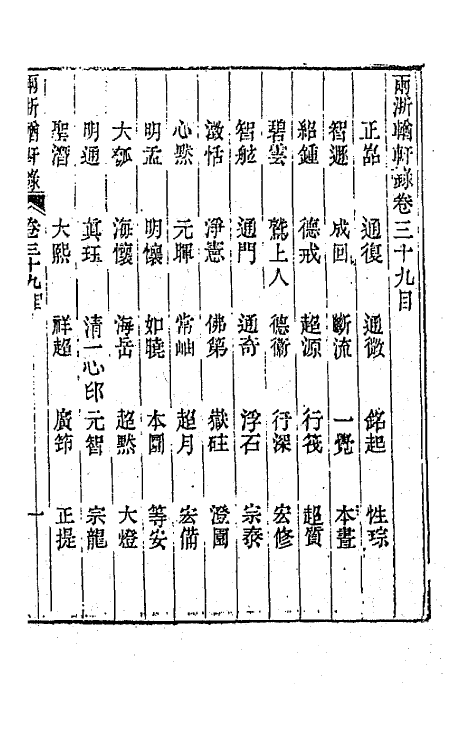 兩浙輶軒錄卷三十九目
正嵓 通復 通微 銘起 性琮
智遜 成回 斷流 一覺 本晝
紹鍾 德戒 超源 行筏 超質
碧雲 鷲上人 德衡 行深 宏修
智舷 通門 通奇 浮石 宗泰
澂恬 淨憲 佛第 嶽砫 澄圓
心默 元暉 常岫 超月 宏備
明孟 明懷 如曉 本圓 等安
大瓠 海懷 海岳 超默 大燈
明通 眞珏 清一心印 元智 宗龍
聖濳 大熙 祥超 廣筛 正提
兩浙輶軒錄 卷三十九目 一